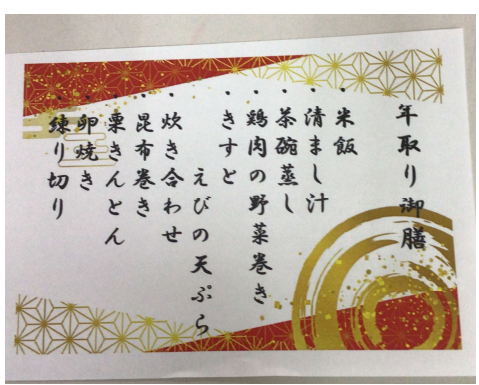 年取り御膳
・米飯
・清まし汁
・茶碗蒸し
・鶏肉の野菜巻き
・きすと
えびの天ぷら
・炊き合わせ
・昆布巻き
・栗きんとん
・卵焼き
・練り切り